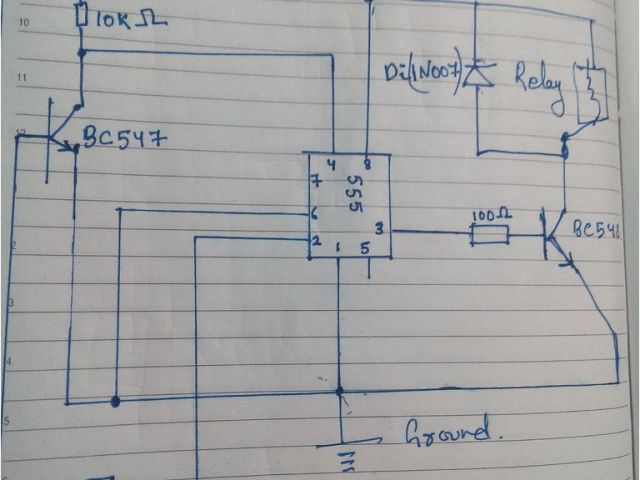 10
10K Ω
11
Di(1N007)
Relay
BC547
4 8
7
555
6
3
100Ω
2
1 5
2
3
4
Ground.
5